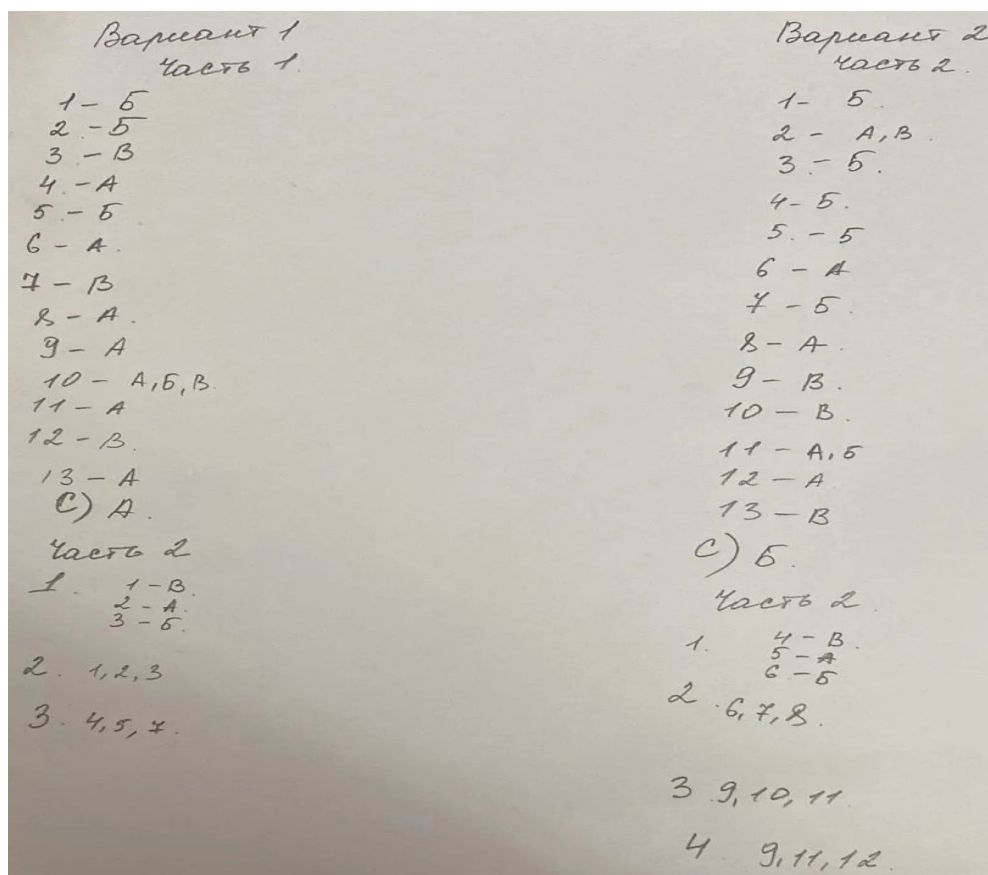 Вариант 1
Часть 1.
1 - Б
2. - Б
3 - В
4. - А
5. - Б
6 - А.
7 - В
8 - А.
9 - А
10 - А, Б, В.
11 - А
12 - В.
13 - А
С) А.
Часть 2
1. 1 - В.
2 - А.
3 - Б.
2. 1, 2, 3
3. 4, 5, 7.
Вариант 2
Часть 2.
1 - Б.
2 - А, В.
3 - Б.
4 - Б.
5. - Б
6 - А
7 - Б.
8 - А.
9 - В.
10 - В.
11 - А, Б
12 - А
13 - В
С) Б.
Часть 2.
1. 4 - В.
5 - А
6 - Б
2. 6, 7, 8.
3. 9, 10, 11.
4 9, 11, 12.